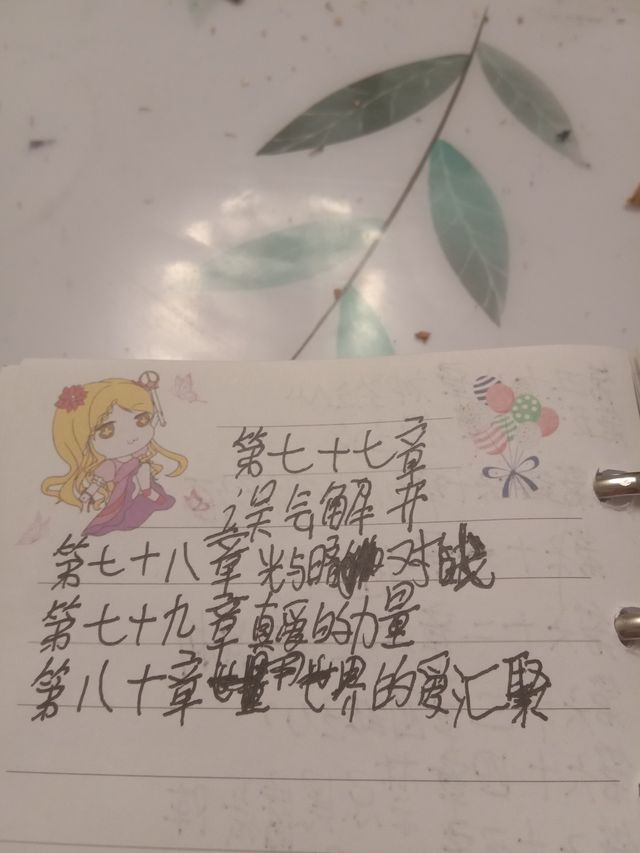 第七十七章
误会解开
第七十八章光与暗的对战
第七十九章真爱的力量
第八十章世界的爱汇聚